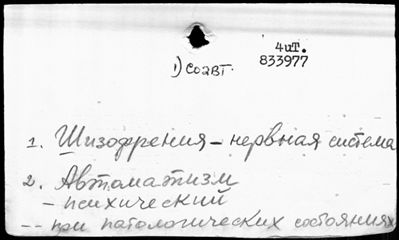 4иТ.
1) Соавт.
833977
1. Шизофрения – нервная система
2. Автоматизм
– психический
-- при патологических состояниях